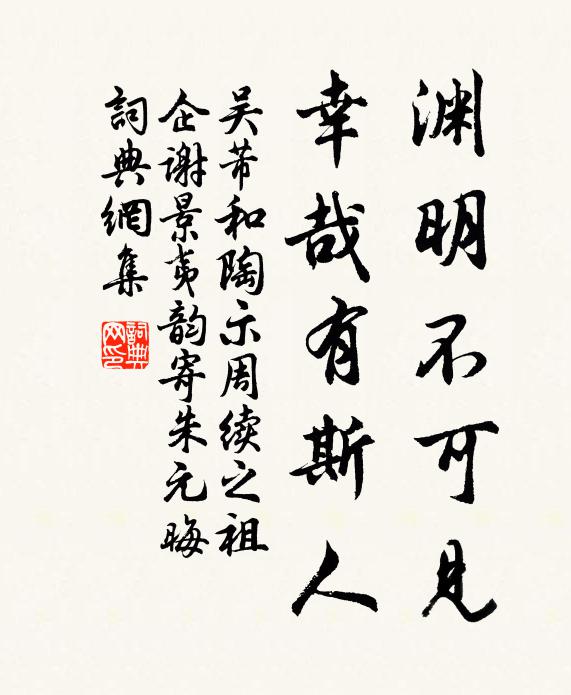 渊明不可見
幸哉有斯人
吴芾和陶示周续之祖
企谢景夷韵寄朱元晦
詞典網集
詞典网印